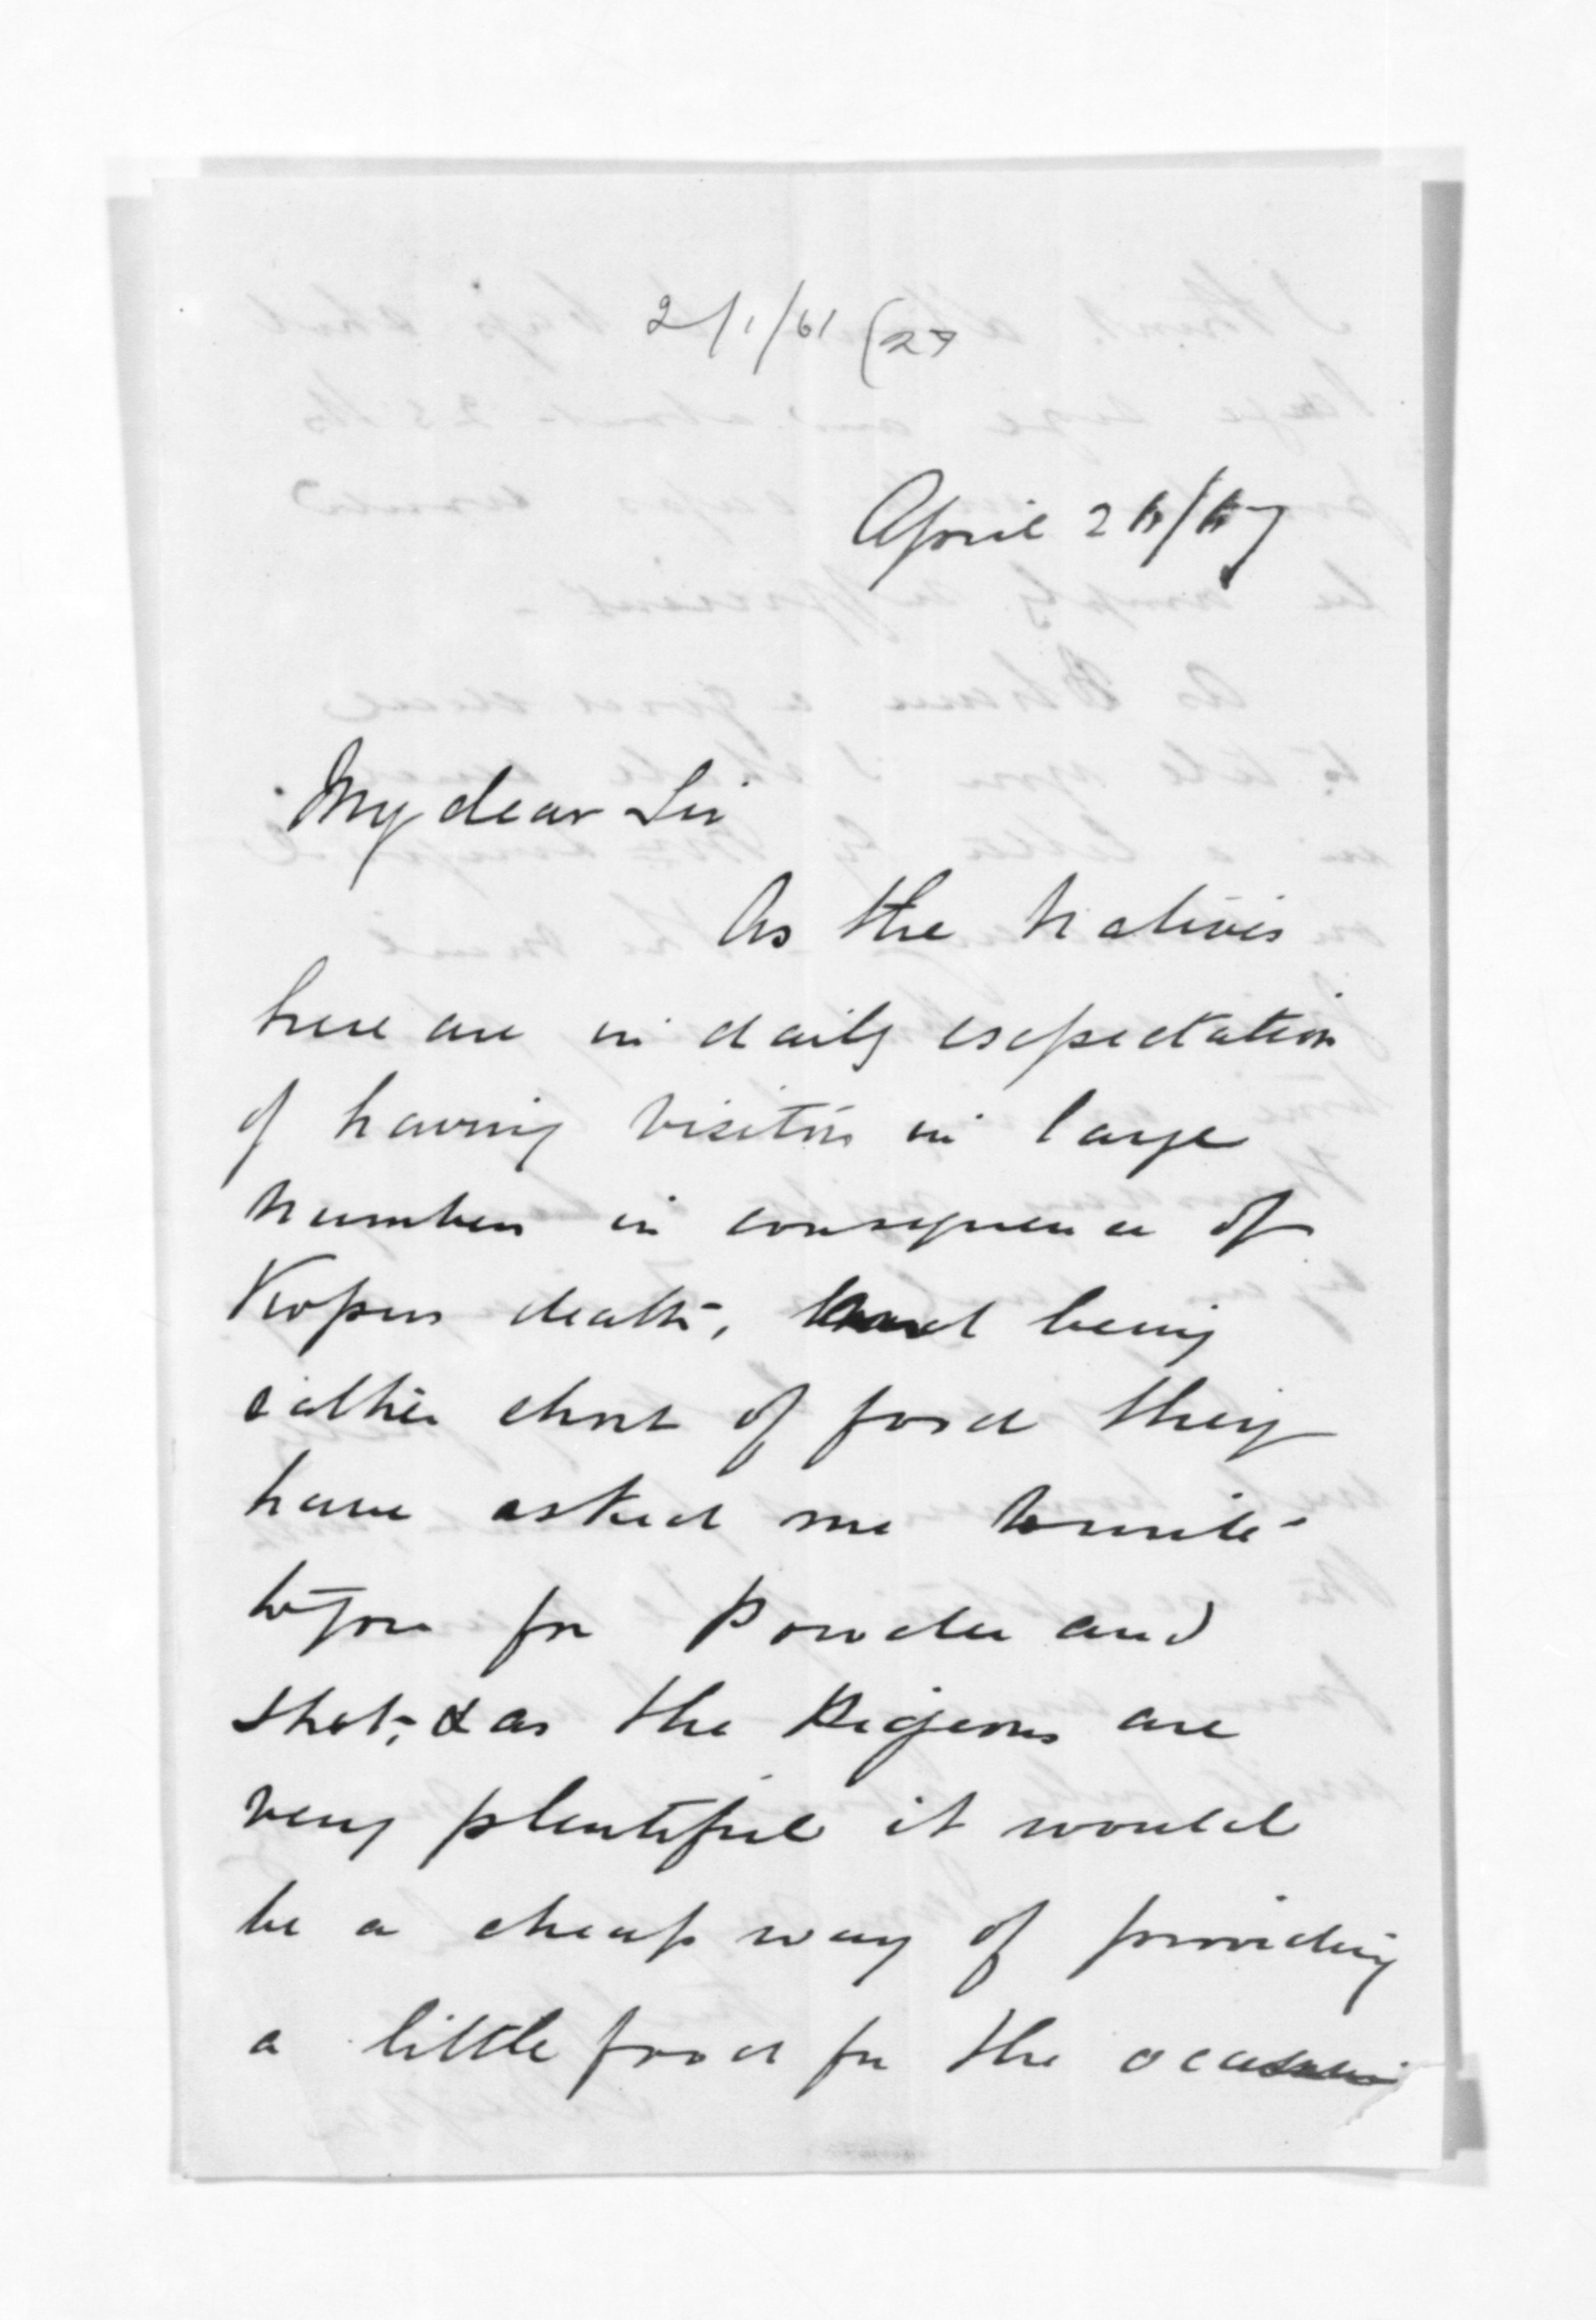 2/1/61 (27
April 2
My dear Sir
As the Natives
here are in daily expectation
of having visitors in large
numbers in consequence of
death, and being
rather short of food they
have asked me to write
to you for Powder and
shot, & as the Pigeons are
very plentiful it would
be a cheap way of providing
a little food for the occasion